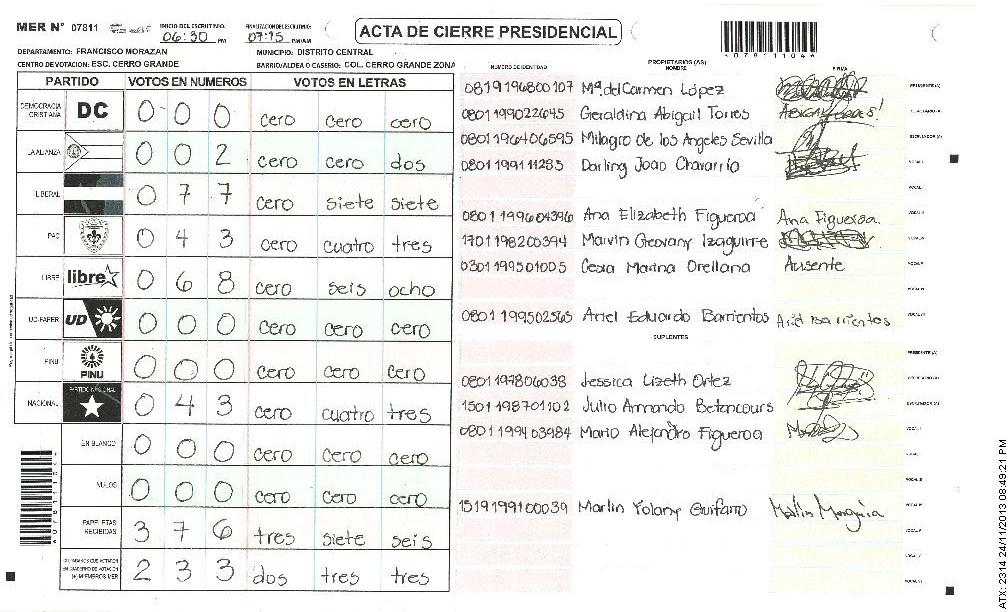 MER N° 07811 INICIO DEL ESCRUTINIO: 06:30 PM/AM FINALIZACION ESCRUTINIO: 07:15 PM/AM ACTA DE CIERRE PRESIDENCIAL
*07811104*
DEPARTAMENTO: FRANCISCO MORAZAN MUNICIPIO: DISTRITO CENTRAL
CENTRO DE VOTACION: ESC. CERRO GRANDE BARRIO/ALDEA O CASERIO: COL. CERRO GRANDE ZONA
PARTIDO VOTOS EN NUMEROS VOTOS EN LETRAS
DEMOCRACIA CRISTIANA DC 0 0 0 cero cero cero
LA ALIANZA 0 0 2 cero cero dos
LIBERAL 0 7 7 cero siete siete
PAC 0 4 3 cero cuatro tres
LIBRE libre 0 6 8 cero seis ocho
UD-FAPER UD 0 0 0 cero cero cero
PINU PINU 0 0 0 cero cero cero
NACIONAL PARTIDO NACIONAL 0 4 3 cero cuatro tres
EN BLANCO 0 0 0 cero cero cero
NULOS 0 0 0 cero cero cero
PAPELETAS RECIBIDAS 3 7 6 tres siete seis
CIUDADANOS QUE VOTARON EN CUADERNO DE VOTACION (+) MIEMBROS MER 2 3 3 dos tres tres
NUMERO DE IDENTIDAD PROPIETARIOS (AS) NOMBRE FIRMA
0819196800107 Mª del Carmen López PRESIDENTE (A)
0801199022645 Geraldina Abigail Torres SECRETARIO (A)
0801196406595 Milagro de los Angeles Sevilla ESCRUTADOR (A)
0801199111285 Darling Joao Chavarria VOCAL I
0801199604396 Ana Elizabeth Figueroa Ana Figueroa
1701198200394 Marvin Geovany Izaguirre
0301199501005 Cesia Marina Orellana Ausente
0801199502565 Ariel Eduardo Barrientos Ariel Barrientos
SUPLENTES
PRESIDENTE (A)
0801197806038 Jessica Lizeth Ortez SECRETARIO (A)
1501198701102 Julio Armando Betancours ESCRUTADOR (A)
0801199403984 Mario Alejandro Figueroa VOCAL I
1519199100039 Marlin Yolany Guifarro
ATX: 2314 24/11/2013 08:49:21 PM